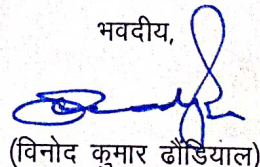 भवदीय,
(विनोद कुमार ढौंडियाल)